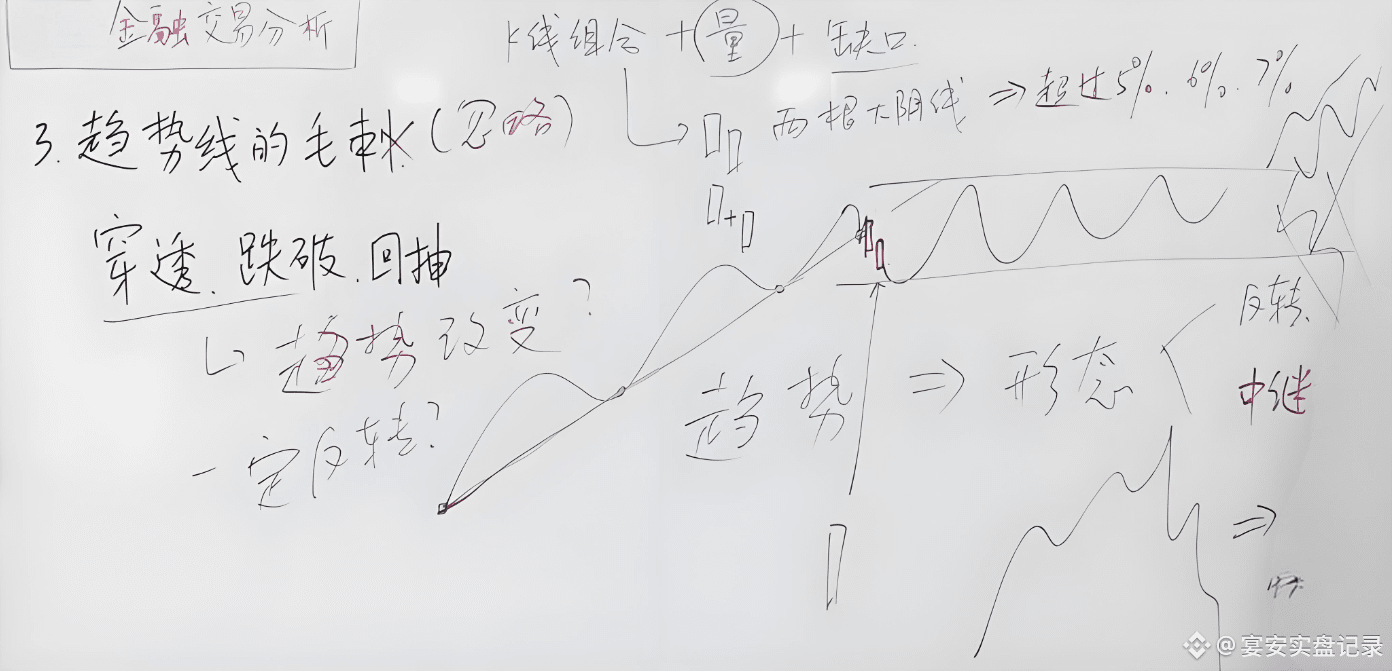 金融交易分析
K线组合+量+缺口
两根大阴线 ⇒ 超过5%. 6%. 7%
3. 趋势线的毛刺(忽略)
穿透. 跌破. 回抽
↳ 趋势改变?
一定反转?
趋势 ⇒ 形态
反转
中继
⇒
@宴安实盘记录